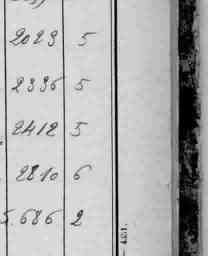 2023 5
2336 5
2412 5
2810 6
5.686 2